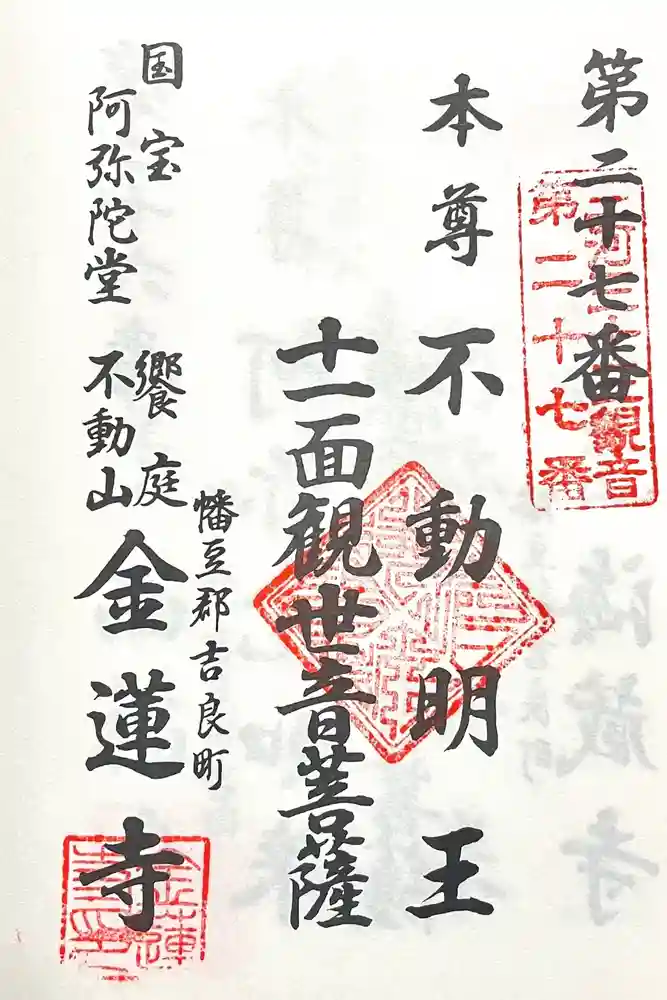 第二十七番
第二十七番
観音
本尊 不動明王
十一面観世音菩薩
幡豆郡吉良町
国宝 饗庭
阿弥陀堂 不動山 金蓮寺